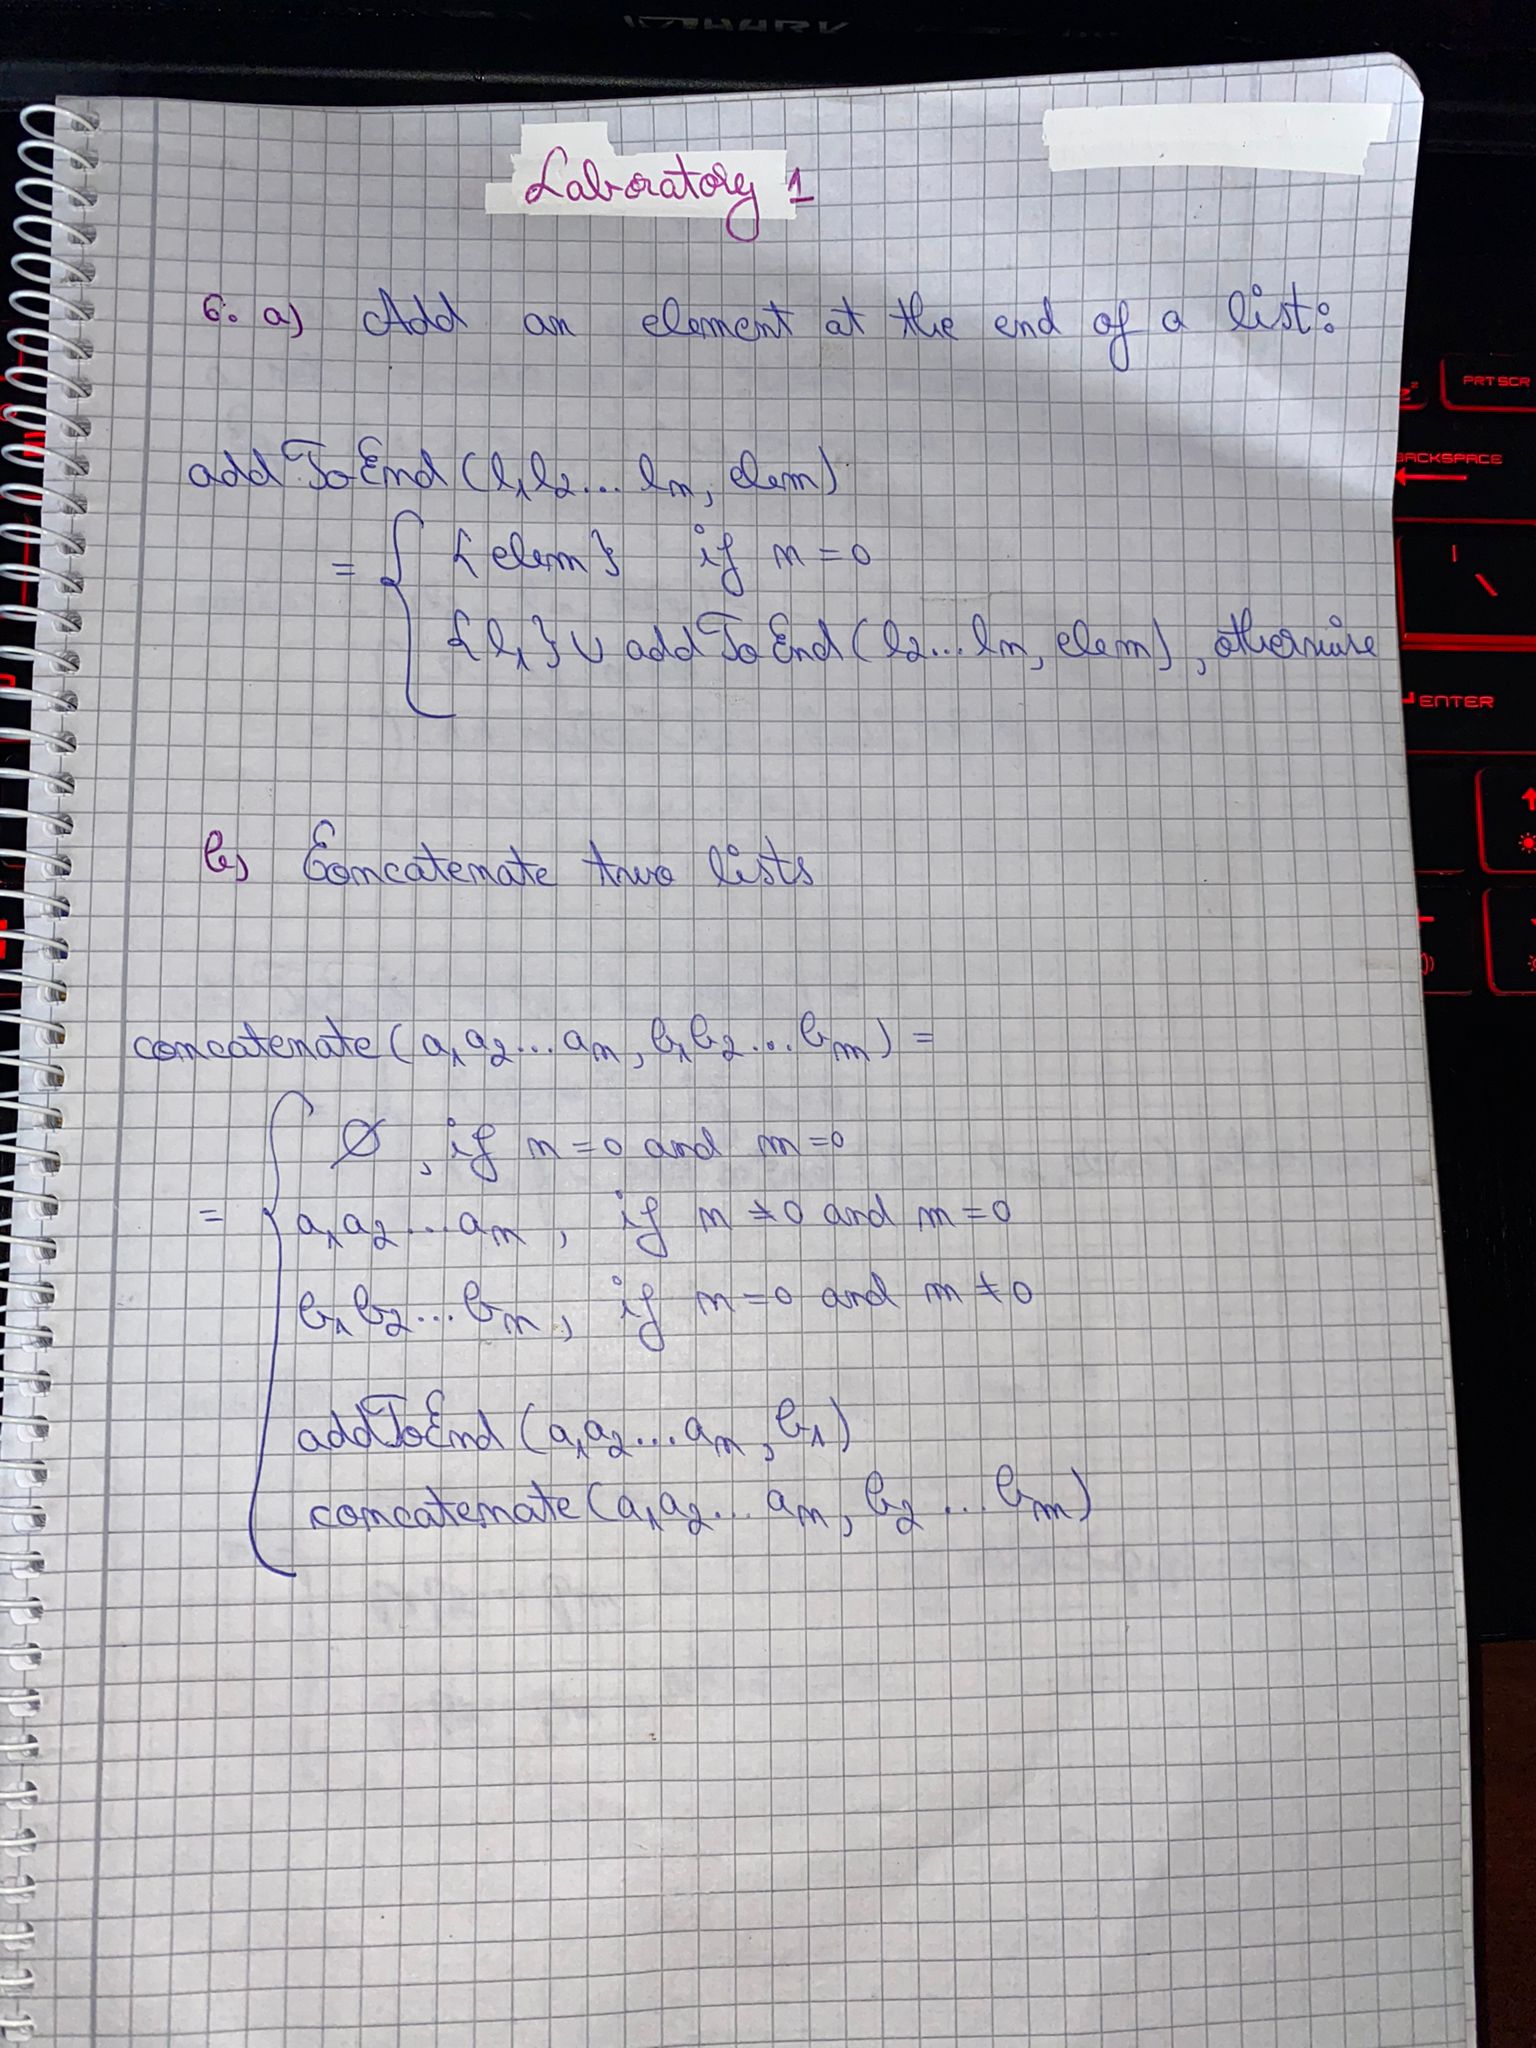 Laboratory 1
6. a) Add an element at the end of a list:
addToEnd(l₁l₂...lₙ, elem)
= { {elem} if n = 0
{l₁} ∪ addToEnd(l₂...lₙ, elem), otherwise
b) Concatenate two lists
concatenate(a₁a₂...aₙ, b₁b₂...bₘ) =
∅, if n = 0 and m = 0
= { a₁a₂...aₙ, if n ≠ 0 and m = 0
b₁b₂...bₘ, if n = 0 and m ≠ 0
addToEnd(a₁a₂...aₙ, b₁)
concatenate(a₁a₂...aₙ, b₂...bₘ)
PRT SCR
BACKSPACE
ENTER